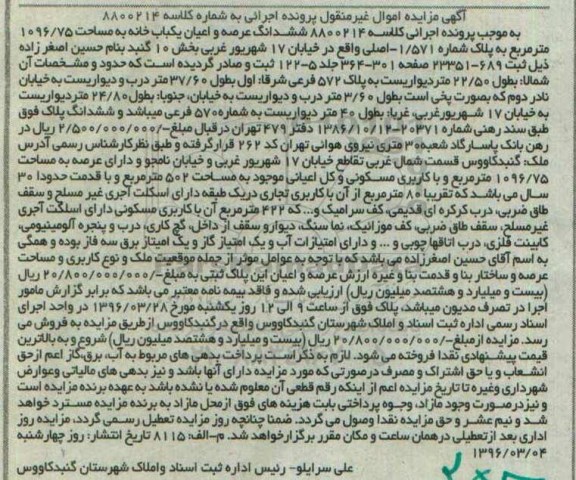 آگهی مزایده اموال غیرمنقول پرونده اجرائی به شماره کلاسه ۸۸۰۰۲۱۴
به موجب پرونده اجرائی کلاسه ۸۸۰۰۲۱۴ ششدانگ عرصه و اعیان یکباب خانه به مساحت ۱۰۹۶/۷۵
مترمربع به پلاک شماره ۱/۵۷۱-اصلی واقع در خیابان ۱۷ شهریور غربی بخش ۱۰ گنبد بنام حسین اصغر زاده
ذیل ثبت ۶۸۹-۲۳۳۵۱ صفحه ۳۰۱-۳۶۴ جلد ۵-۱۲۲ ثبت و صادر گردیده است که حدود و مشخصات آن
شمالا: بطول ۲۲/۵۰ متر دیواریست به پلاک ۵۷۲ فرعی شرقا: اول بطول ۳۷/۶۰ متر درب و دیواریست به خیابان
نادر دوم که بصورت پخی است بطول ۳/۶۰ متر درب و دیواریست به خیابان، جنوبا: بطول ۲۴/۸۰ متر دیواریست
به خیابان ۱۷ شهریورغربی، غربا: بطول ۴۰ متر دیواریست به شماره ۵۷۰ فرعی میباشد و ششدانگ پلاک فوق
طبق سند رهنی شماره ۲۰۳۷۱-۱۳۸۶/۱۰/۱۲ دفتر ۴۷۹ تهران درقبال مبلغ-/۲/۵۰۰/۰۰۰/۰۰۰ ریال در
رهن بانک پاسارگاد شعبه ۳۰ متری نیروی هوائی تهران کد ۲۶۲ قرارگرفته و طبق نظرکارشناس رسمی آدرس
ملک: گنبدکاووس قسمت شمال غربی تقاطع خیابان ۱۷ شهریور غربی و خیابان نامجو و دارای عرصه به مساحت
۱۰۹۶/۷۵ مترمربع و با کاربری مسکونی و کل اعیانی موجود به مساحت ۵۰۲ مترمربع و با قدمت حدودا ۳۰
سال می باشد که تقریبا ۸۰ مترمربع از آن با کاربری تجاری دریک طبقه دارای اسکلت آجری غیر مسلح و سقف
طاق ضربی، درب کرکره ای قدیمی، کف سرامیک و... که ۴۲۲ مترمربع آن با کاربری مسکونی دارای اسلگت آجری
غیرمسلح، سقف طاق ضربی، کف موزائیک، نما سنگ، دیوار و سقف از داخل، گچ کاری، درب و پنجره آلومینیومی،
کابینت فلزی، درب اتاقها چوبی و ... و دارای امتیازات آب و یک امتیاز گاز و یک امتیاز برق سه فاز بوده و همگی
به اسم آقای حسین اصغرزاده می باشد که با توجه به عوامل موثر از جمله موقعیت ملک و نوع کاربری و مساحت
عرصه و ساختار بنا و قدمت بنا و غیره ارزش عرصه و اعیان این پلاک ثبتی به مبلغ-/۲۰/۸۰۰/۰۰۰/۰۰۰ ریال
(بیست و میلیارد و هشتصد میلیون ریال) ارزیابی شده و فاقد بیمه نامه معتبر می باشد که برابر گزارش مامور
اجرا در تصرف مدیون میباشد، پلاک فوق از ساعت ۹ الی ۱۲ روز یکشنبه مورخ ۱۳۹۶/۰۳/۲۸ در واحد اجرای
اسناد رسمی اداره ثبت اسناد و املاک شهرستان گنبدکاووس واقع درگنبدکاووس ازطریق مزایده به فروش می
رسد. مزایده ازمبلغ-/۲۰/۸۰۰/۰۰۰/۰۰۰ ریال (بیست و میلیارد و هشتصد میلیون ریال) شروع و به بالاترین
قیمت پیشنهادی نقدا فروخته می شود. لازم به ذکراست پرداخت بدهی های مربوط به آب، برق،گاز اعم ازحق
انشعاب و یا حق اشتراک و مصرف درصورتی که مورد مزایده دارای آنها باشد و نیز بدهی های مالیاتی وعوارض
شهرداری وغیره تا تاریخ مزایده اعم از اینکه رقم قطعی آن معلوم شده یا نشده باشد به عهده برنده مزایده است
و نیزدرصورت وجود مازاد، وجوه پرداختی بابت هزینه های فوق ازمحل مازاد به برنده مزایده مسترد خواهد
شد و نیم عشر و حق مزایده نقدا وصول می گردد. ضمنا چنانچه روز مزایده تعطیل رسمی گردد، مزایده روز
اداری بعد ازتعطیلی درهمان ساعت و مکان مقرر برگزارخواهد شد. م-الف: ۸۱۱۵ تاریخ انتشار: روز چهارشنبه
۱۳۹۶/۰۳/۰۴
علی سرایلو- رئیس اداره ثبت اسناد واملاک شهرستان گنبدکاووس